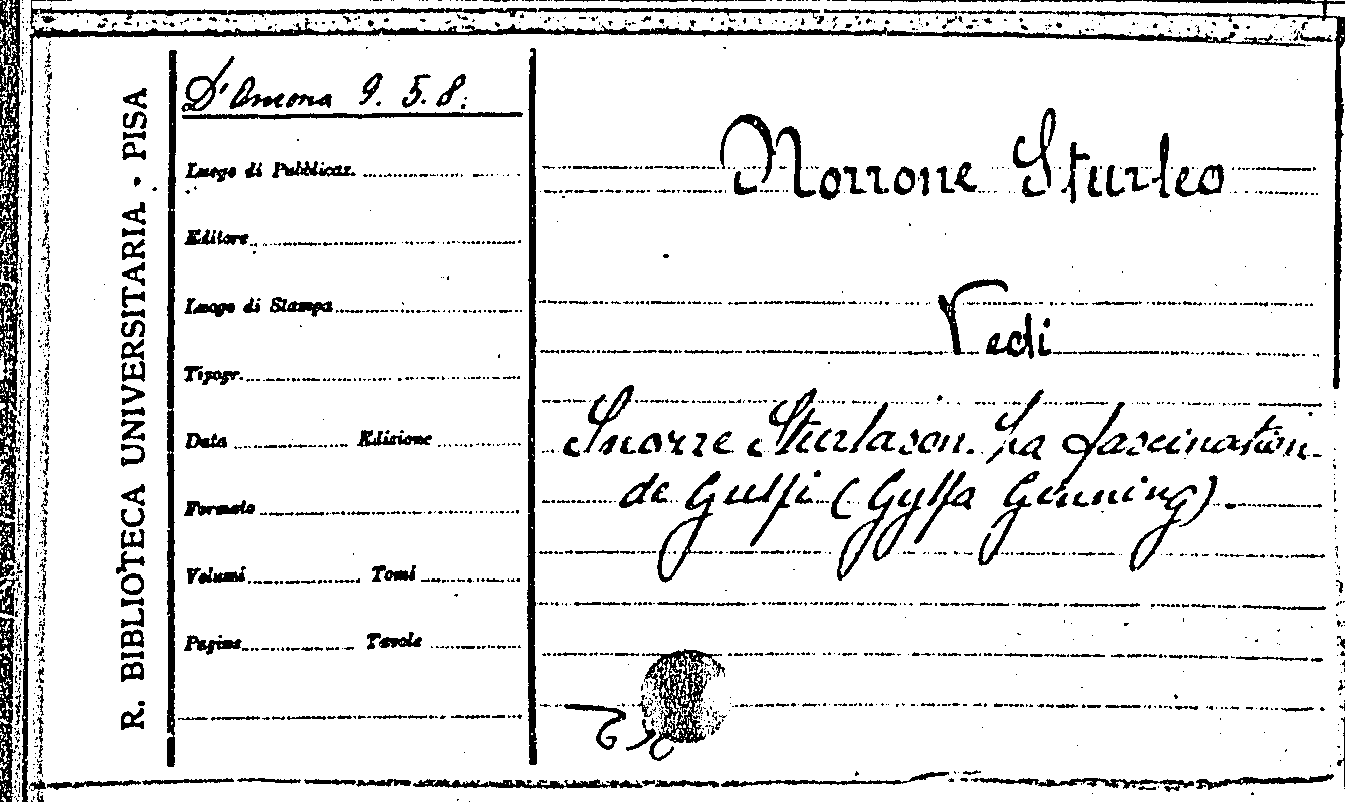 R. BIBLIOTECA UNIVERSITARIA - PISA
D'Ancona 9. 5. 8.
Luogo di Pubblicaz.
Editore
Luogo di Stampa
Tipogr.
Data Edizione
Formato
Volumi Tomi
Pagine Tavole
Norrone Sturleo
Vedi
Snorre Sturlason. La fascination
de Gulfi (Gylfa Ginning).